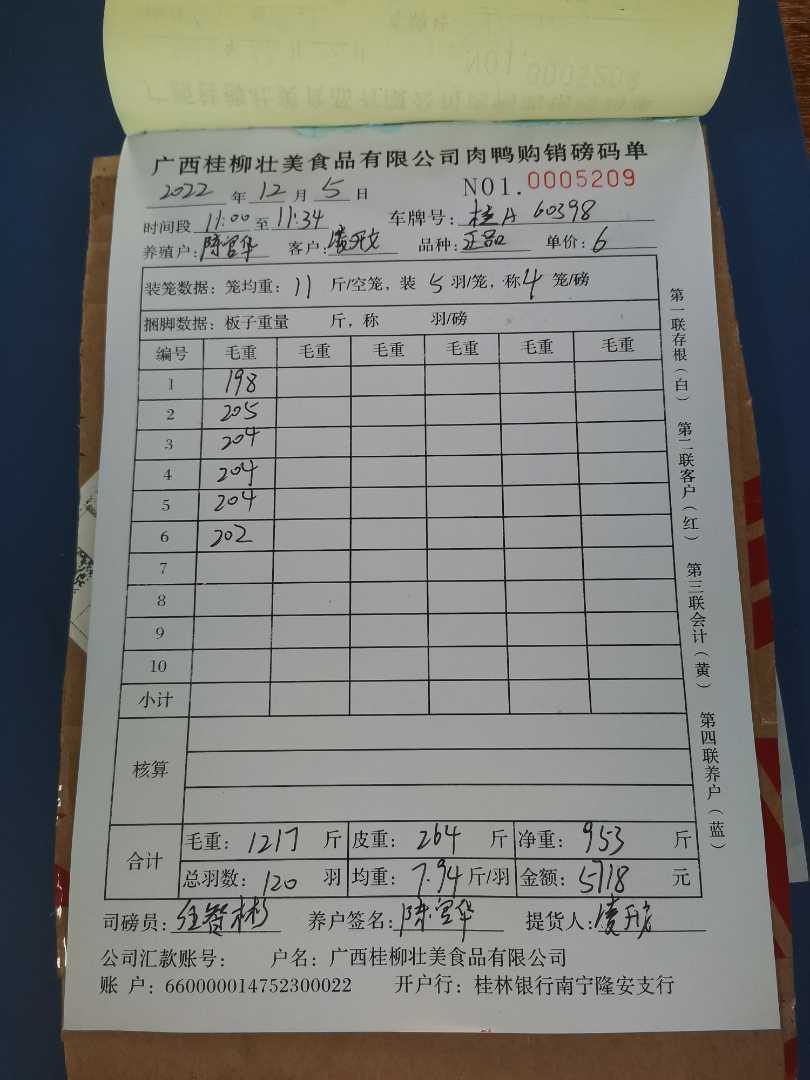 广西桂柳壮美食品有限公司肉鸭购销磅码单
2022 年 12 月 5 日 NO1.0005209
时间段 11:00 至 11:34 车牌号: 桂A 60398
养殖户: 陈宫华 客户: 凌 品种: 正品 单价: 6
装笼数据: 笼均重: 11 斤/空笼, 装 5 羽/笼, 称 4 笼/磅
捆脚数据: 板子重量 斤, 称 羽/磅
编号 毛重 毛重 毛重 毛重 毛重 毛重
1 198
2 205
3 204
4 204
5 204
6 202
7
8
9
10
小计
核算
合计
毛重: 1217 斤 皮重: 264 斤 净重: 953 斤
总羽数: 120 羽 均重: 7.94 斤/羽 金额: 5718 元
司磅员: 智彬 养户签名: 陈宫华 提货人: 凌
公司汇款账号: 户名: 广西桂柳壮美食品有限公司
账 户: 660000014752300022 开户行: 桂林银行南宁隆安支行
第一联存根(白) 第二联客户(红) 第三联会计(黄) 第四联养户(蓝)